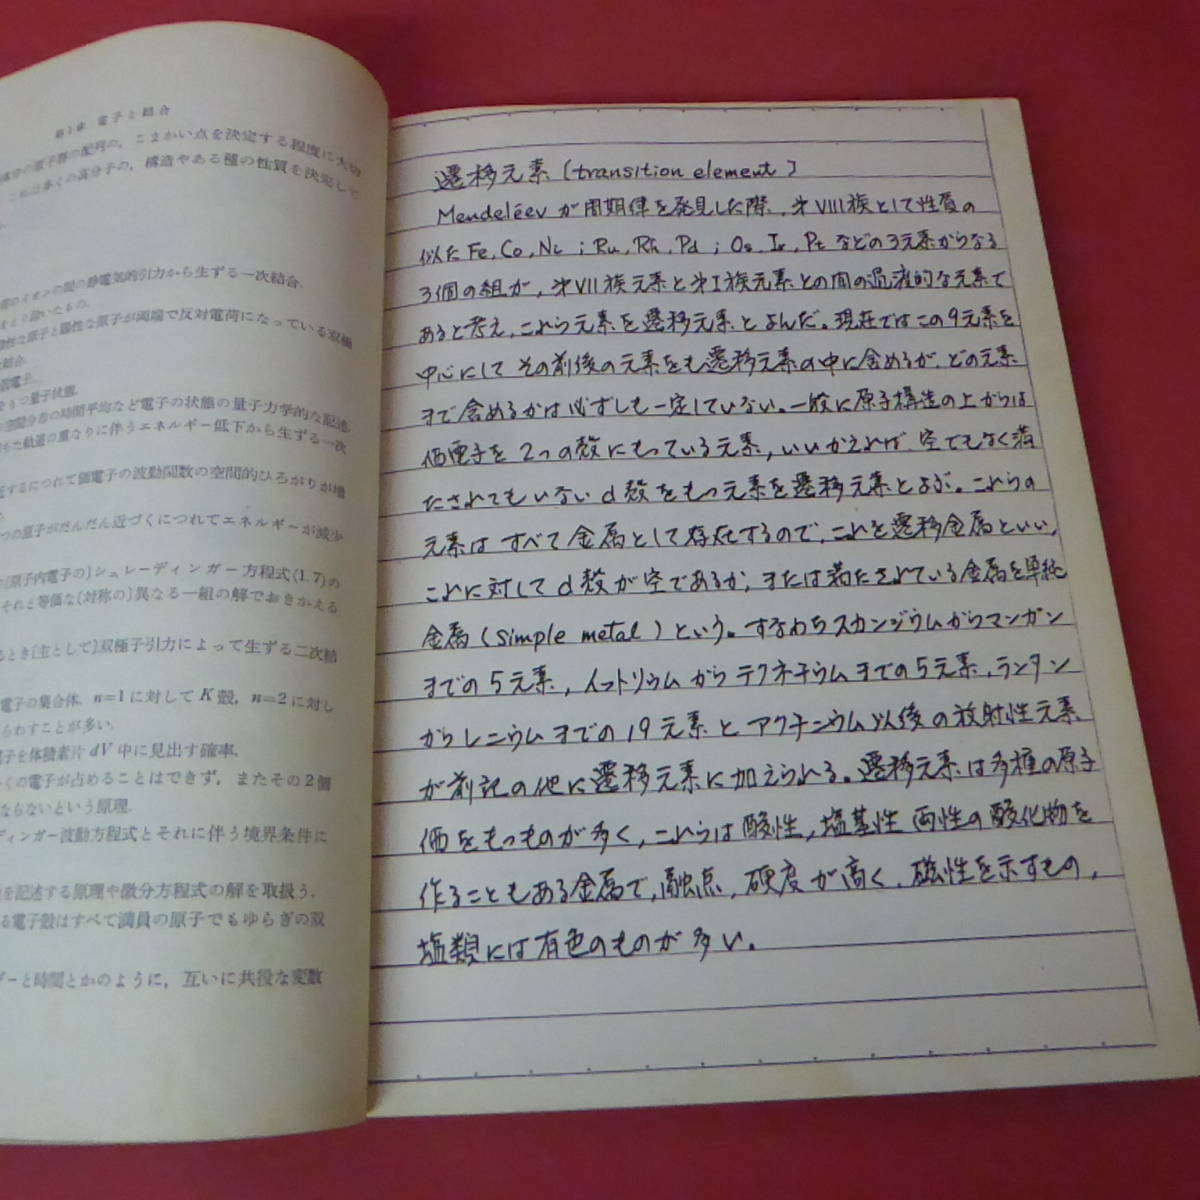 第1章 電子と結合
体中の原子群の配列の，こまかい点を決定する程度に大切
これは多くの高分子の，構造やある種の性質を決定して
のイオンの間の静電気的引力から生ずる一次結合．
より除いたもの．
陰性な原子と陽性な原子が両端で反対電荷になっている双極
結合．
電子．
もつ量子状態．
空間分布の時間平均など電子の状態の量子力学的な記述．
軌道の重なりに伴うエネルギー低下から生ずる一次
するにつれて価電子の波動関数の空間的ひろがりが増
つの原子がだんだん近づくにつれてエネルギーが減少
(原子内電子の)シュレーディンガー方程式(1.7)の
それと等価な(対称の)異なる一組の解でおきかえる
るとき(主として)双極子引力によって生ずる二次結
電子の集合体．n=1に対してK殻，n=2に対し
らわすことが多い．
電子を体積素片dV中に見出す確率．
くの電子が占めることはできず，またその2個
ならないという原理．
ディンガー波動方程式とそれに伴う境界条件に
を記述する原理や微分方程式の解を取扱う．
る電子殻はすべて満員の原子でもゆらぎの双
ギーと時間とかのように，互いに共役な変数
遷移元素(transition element)
Mendeléevが周期律を発見した際、㐧VIII族として性質の
似たFe,Co,Ni;Ru,Rh,Pd;Os,Ir,Ptなどの3元素からなる
3個の組が，㐧VII族元素と㐧I族元素との間の過渡的な元素で
あると考え，これら元素を遷移元素とよんだ。現在ではこの9元素を
中心にしてその前後の元素をも遷移元素の中に含めるが、どの元素
まで含めるかは必ずしも一定していない。一般に原子構造の上からは
価電子を2つの殻にもっている元素，いいかえれば、空でもなく満
たされてもいないd殻をもつ元素を遷移元素とよぶ。これらの
元素はすべて金属として存在するので，これを遷移金属といい，
これに対してd殻が空であるか，または満たされている金属を単純
金属(simple metal)という。すなわちスカンジウムからマンガン
までの5元素，イットリウムからテクネチウムまでの5元素，ランタン
からレニウムまでの19元素とアクチニウム以後の放射性元素
が前記の他に遷移元素に加えられる。遷移元素は多種の原子
価をもつものが多く，これらは酸性，塩基性両性の酸化物を
作ることもある金属で，融点，硬度が高く、磁性を示すもの，
塩類には有色のものが多い。